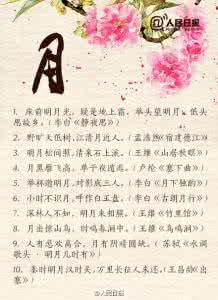 @人民日报
月
1. 床前明月光，疑是地上霜。举头望明月，低头
思故乡。（李白《静夜思》）
2. 野旷天低树，江清月近人。（孟浩然《宿建德江》）
3. 明月松间照，清泉石上流。（王维《山居秋暝》）
4. 月黑雁飞高，单于夜遁逃。（卢纶《塞下曲》）
5. 举杯邀明月，对影成三人。（李白《月下独酌》）
6. 小时不识月，呼作白玉盘。（李白《古朗月行》）
7. 深林人不知，明月来相照。（王维《竹里馆》）
8. 月出惊山鸟，时鸣春涧中。（王维《鸟鸣涧》）
9. 人有悲欢离合，月有阴晴圆缺。（苏轼《水调
歌头·明月几时有》）
10. 秦时明月汉时关，万里长征人未还。（王昌龄《出
塞》）
@人民日报